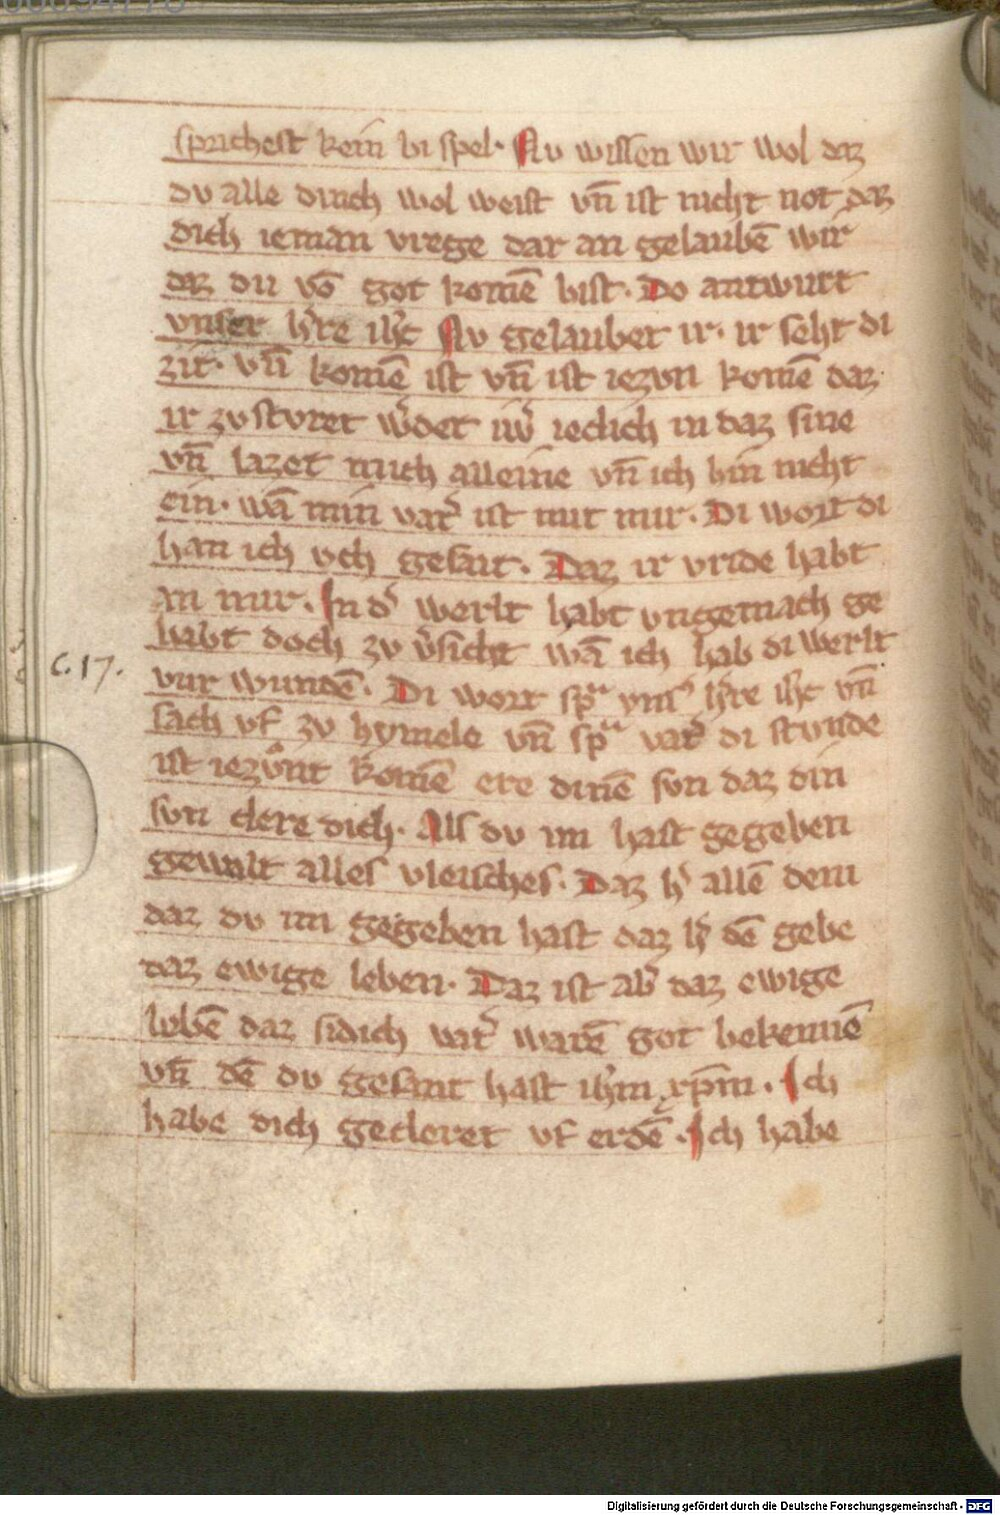 sprichest kein bi spel. Nv wissen wir wol daz
dv alle dinch wol weist vn̄ ist nicht not daz
dich ieman vrege dar an gelaubē wir
daz du vō got komē bist. Do antwurt
vnser hʼre ihc̄ Nv gelaubet ir. ir seht di
zit. vn̄ komē ist vn̄ ist iezvn komē daz
ir zvstvret wʼdet iwʼ ieclich in daz sine
vn̄ lazet mich alleine vn̄ ich bin nicht
ein. wā min vatʼ ist mit mir. Di wort di
han ich vch gesait. Daz ir vride habt
in mir. In dʼ werlt habt vngemach ge
habt doch zv vʼsicht wā ich hab di werlt
C. 17.
vur wundē. Di wort spͣ vnsʼ hʼre ihc̄ vn̄
sach vf zv hymele vn̄ spͣ vatʼ di stvnde
ist iezvnt komē ere dinē svn daz din
svn clere dich. Als dv im hast gegeben
gewalt alles vleisches. Daz hʼ allē dem
daz dv im gegeben hast daz hʼ dē gebe
daz ewige leben. Daz ist abʼ daz ewige
lebē daz si dich vatʼ warē got bekennē
vn̄ dē dv gesant hast ihm̄ xp̄m. Ich
habe dich gecleret vf erdē. Ich habe
Digitalisierung gefördert durch die Deutsche Forschungsgemeinschaft - DFG